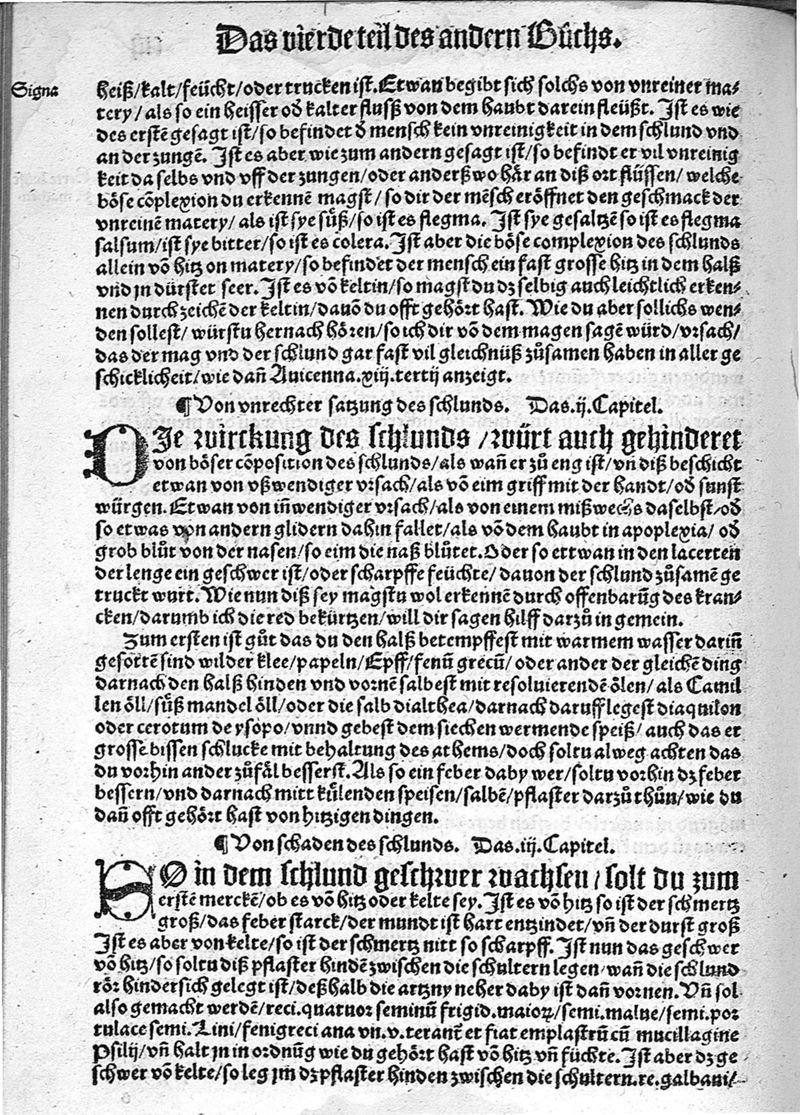 Das vierde teil des andern Bůchs.
Signa
heiß/kalt/feücht/oder trucken ist. Etwan begibt sich solchs von vnreiner ma-
tery/als so ein heisser od̄ kalter flusß von dem haubt darein fleüßt. Ist es wie
des erstē gesagt ist/so befindet d̄ mensch kein vnreinigkeit in dem schlund vnd
an der zungē. Ist es aber wie zum andern gesagt ist/so befindt er vil vnreinig
keit da selbs vnd vff der zungen/oder anderß wo här an diß ort flüssen/welche
böse cōplexion du erkennē magst/so dir der mēsch eröffnet den geschmack der
vnreinē matery/als ist sye sůß/so ist es flegma. Ist sye gesaltzē so ist es flegma
salsum/ist sye bitter/so ist es colera. Ist aber die böse complexion des schlunds
allein vō hitz on matery/so befindet der mensch ein fast grosse hitz in dem halß
vnd jn dürstet seer. Ist es vō keltin/so magstu dz selbig auch leichtlich erken-
nen durch zeichē der keltin/dauō du offt gehört hast. Wie du aber sollichs wen-
den sollest/würstu hernach hören/so ich dir vō dem magen sagē würd/vrsach/
das der mag vnd der schlund gar fast vil gleichnüß zůsamen haben in aller ge
schicklicheit/wie dañ Auicenna.xiij.tertij anzeigt.
¶Von vnrechter satzung des schlunds. Das.ij.Capitel.
DIe wirckung des schlunds/würt auch gehinderet
von böser cōposition des schlunds/als wañ er zů eng ist/vñ diß beschicht
etwan von vßwendiger vrsach/als vō eim griff mit der handt/od̄ sunst
würgen. Etwan von iñwendiger vrsach/als von einem mißwechs daselbst/od̄
so etwas von andern glidern dahin fallet/als vō dem haubt in apoplexia/od̄
grob blůt von der nasen/so eim die naß blůtet. Oder so ettwan in den lacerten
der lenge ein geschwer ist/oder scharpffe feüchte/dauon der schlund zůsamē ge
truckt wurt. Wie nun diß sey magstu wol erkennē durch offenbarūg des kran-
cken/darumb ich die red bekürtzen/will dir sagen hilff darzů in gemein.
Zum ersten ist gůt das du den halß betempffest mit warmem wasser dariñ
gesottē sind wilder klee/papeln/Epff/fenū grecū/oder ander der gleichē ding
darnach den halß hinden vnd vornē salbest mit resoluierendē ölen/als Camil
len öll/sůß mandel öll/oder die salb dialthea/darnach daruff legest diaquilon
oder cerotum de ysopo/vnnd gebest dem siechen wermende speiß/auch das er
grosse bissen schlucke mit behaltung des athems/doch soltu alweg achten das
du vorhin ander zůfäl besserst. Als so ein feber daby wer/soltu vorhin dz feber
bessern/vnd darnach mitt kůlenden speisen/salbē/pflaster darzů thůn/wie du
dañ offt gehört hast von hitzigen dingen.
¶Von schaden des schlunds. Das.iij.Capitel.
SO in dem schlund geschwer wachsen/solt du zum
erstē merckē/ob es vō hitz oder kelte sey. Ist es vō hitz so ist der schmertz
groß/das feber starck/der mundt ist hart entzindet/vñ der durst groß
Ist es aber von kelte/so ist der schmertz nitt so scharpff. Ist nun das geschwer
vō hitz/so soltu diß pflaster hindē zwischen die schultern legen/wañ die schlund
rör hindersich gelegt ist/deßhalb die artzny neher daby ist dañ vornen. Vñ sol
also gemacht werdē/reci.quatuor seminū frigid.maioꝝ/semi.malue/semi.por
tulace semi.Lini/fenigreci ana vn.v.terant̄ et fiat emplastrū cū mucillagine
Psilij/vñ halt jn in ordnūg wie du gehört hast vō hitz vñ füchte. Ist aber dz ge-
schwer vō kelte/so leg jm dz pflaster hinden zwischen die schultern.re.galbani/